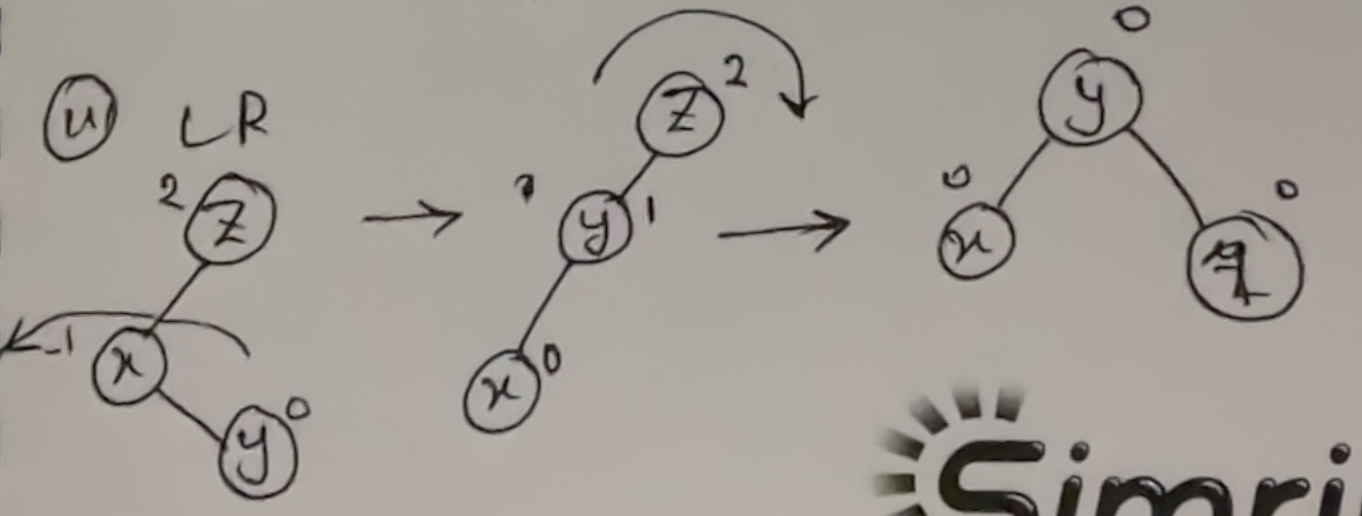 u LR
2 Z
-1 x
y 0
Z 2
y 1
x 0
0
y
0
x
0
Simri